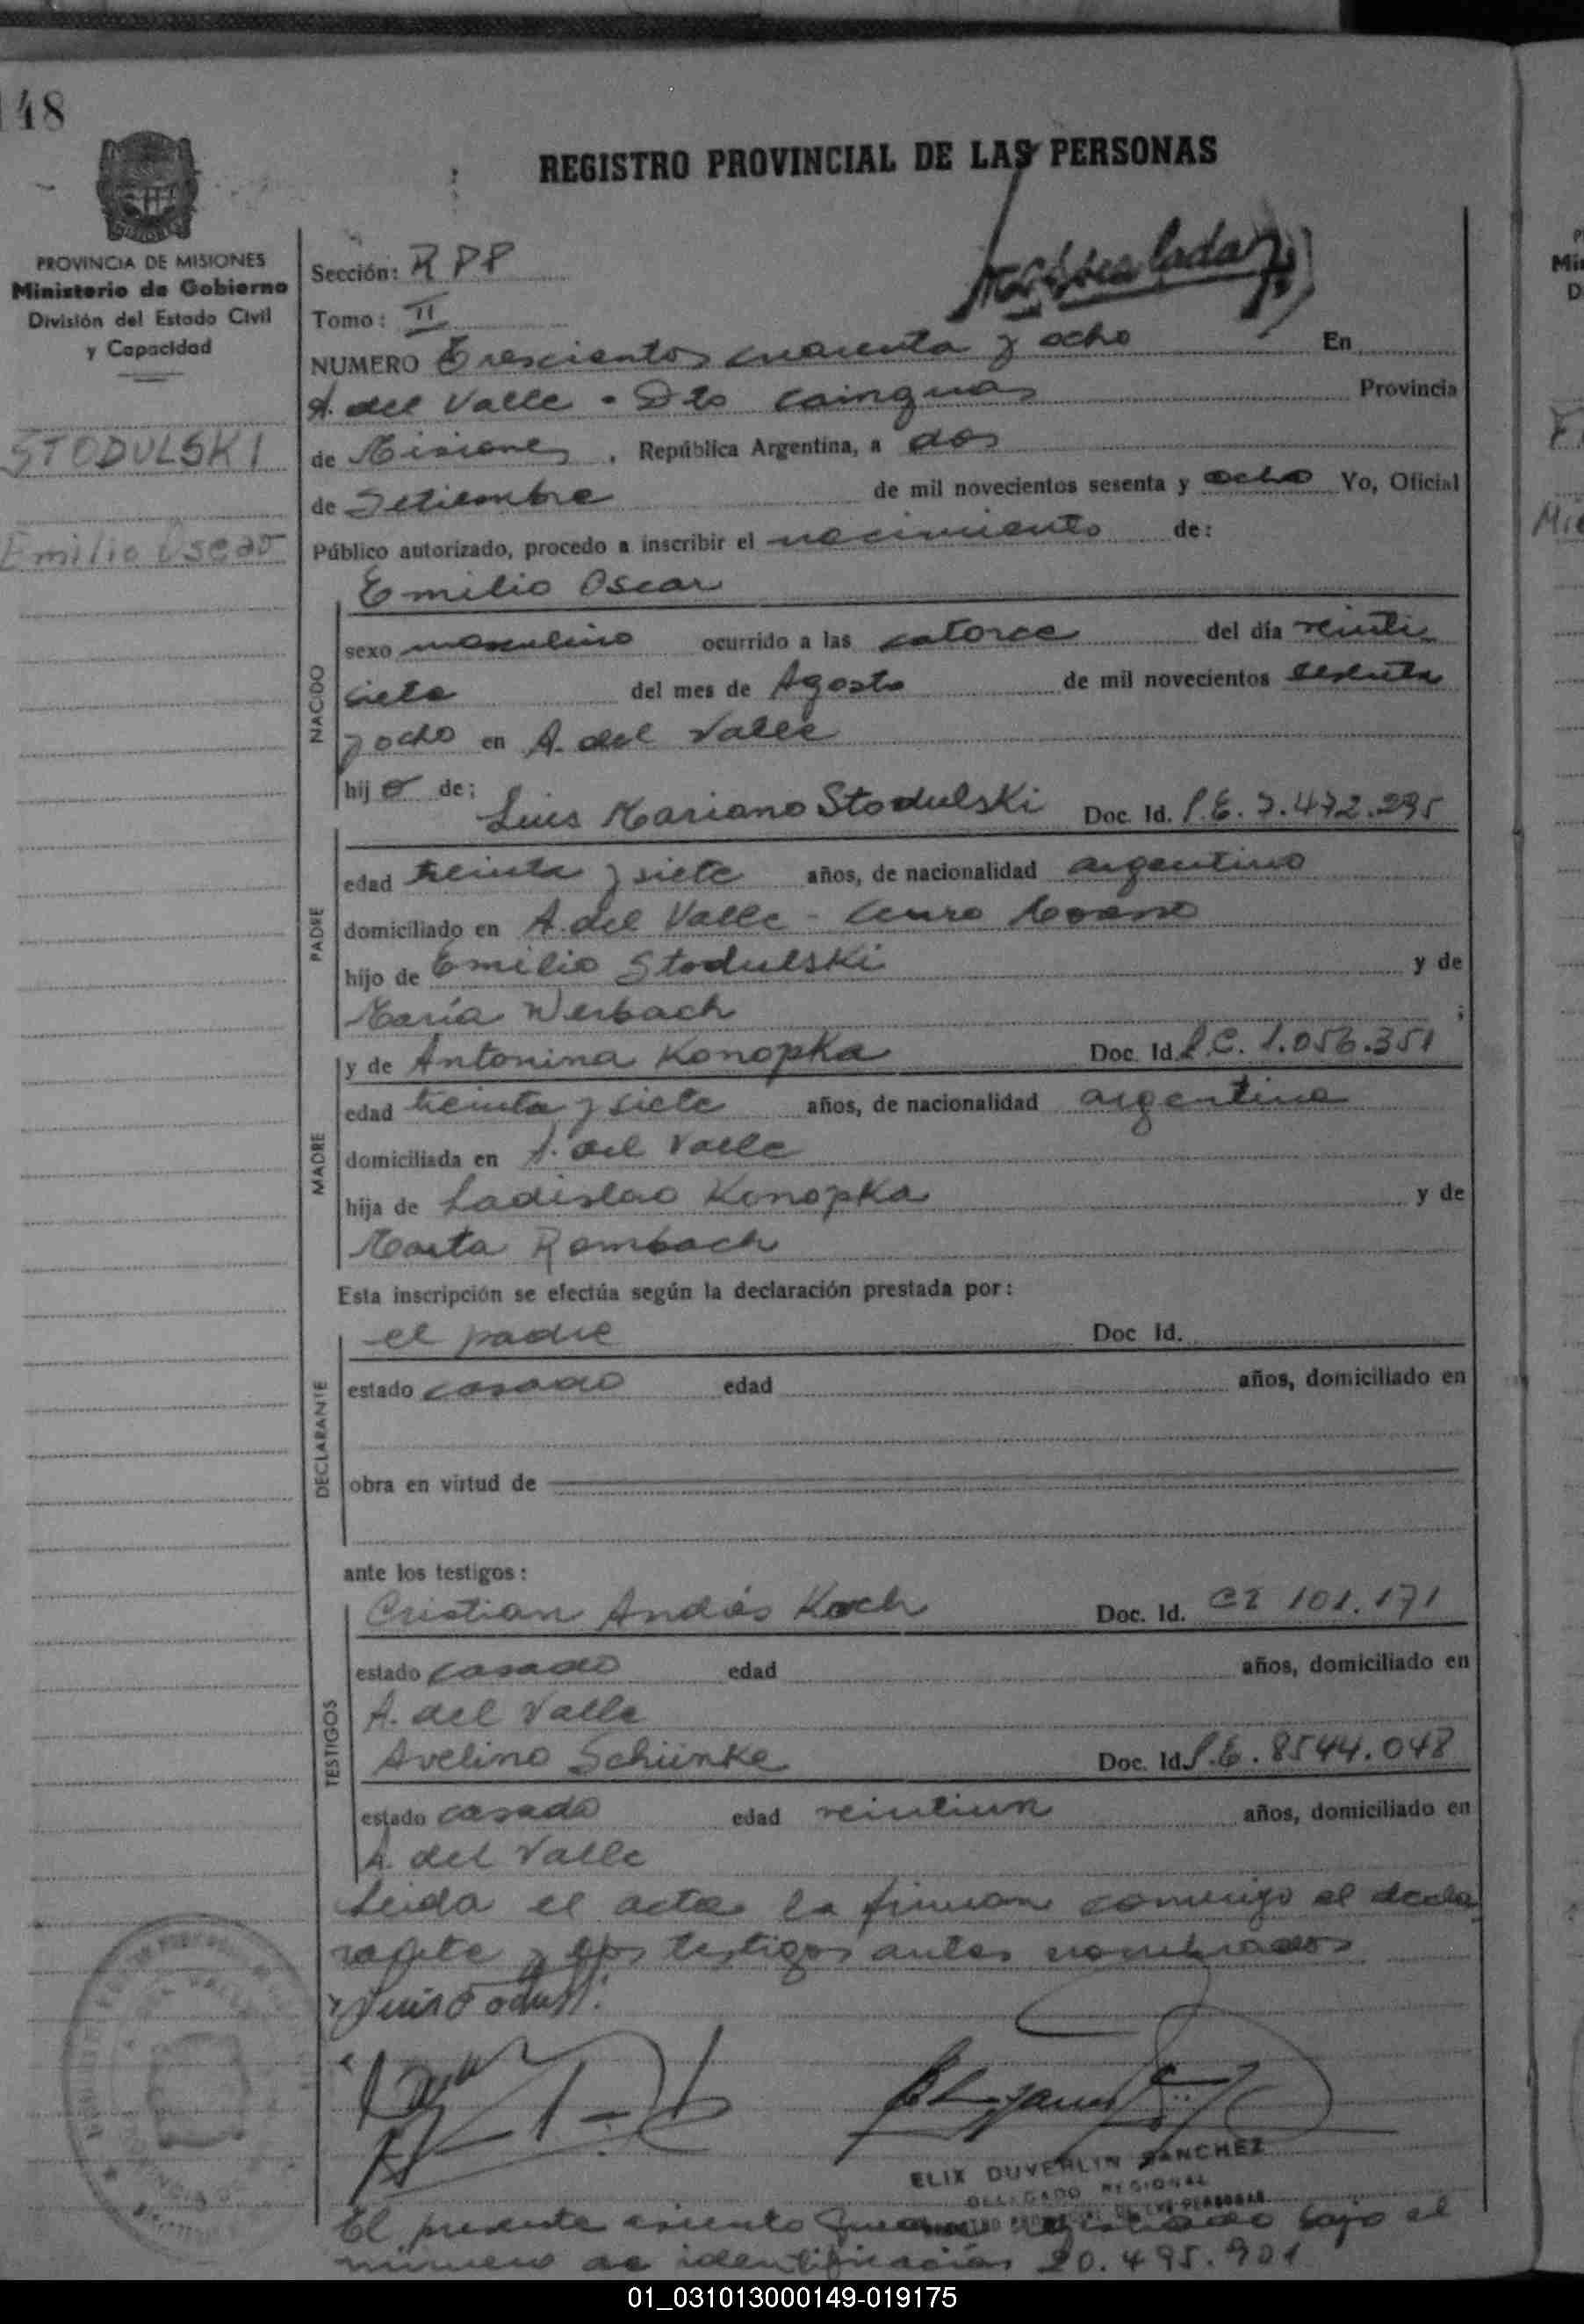 148
REGISTRO PROVINCIAL DE LAS PERSONAS
PROVINCIA DE MISIONES
Ministerio de Gobierno
División del Estado Civil
y Capacidad
STODULSKI
Emilio Oscar
Sección: R P P
Tomo: II
NUMERO Trescientos cuarenta y ocho En
A. del Valle - Dto Cainguas Provincia
de Misiones, República Argentina, a dos
de Setiembre de mil novecientos sesenta y ocho Yo, Oficial
Público autorizado, procedo a inscribir el nacimiento de:
NACIDO
Emilio Oscar
sexo masculino ocurrido a las catorce del día veinti
siete del mes de Agosto de mil novecientos sesenta
y ocho en A. del Valle
hijo de:
Luis Mariano Stodulski Doc. Id. L.E. 7.472.295
PADRE
edad treinta y siete años, de nacionalidad argentino
domiciliado en A. del Valle - Cerro
hijo de Emilio Stodulski y de
María Werbach ;
MADRE
y de Antonina Konopka Doc. Id. L.C. 1.056.351
edad treinta y siete años, de nacionalidad argentina
domiciliada en A. del Valle
hija de Ladislao Konopka y de
Marta Rombach
Esta inscripción se efectúa según la declaración prestada por:
DECLARANTE
el padre Doc Id.
estado casado edad años, domiciliado en
obra en virtud de
ante los testigos:
TESTIGOS
Cristian Andrés Koch Doc. Id. CI 101.171
estado casado edad años, domiciliado en
A. del Valle
Avelino Schünke Doc. Id. L.E. 8544.048
estado casado edad veintiun años, domiciliado en
A. del Valle
Leida el acta la firman conmigo el decla
rante y los testigos antes nombrados
ELIX DUVERLIN SANCHEZ
DELEGADO REGIONAL
El presente asiento queda registrado bajo el
numero de identificación 20.495.901
01_031013000149-019175